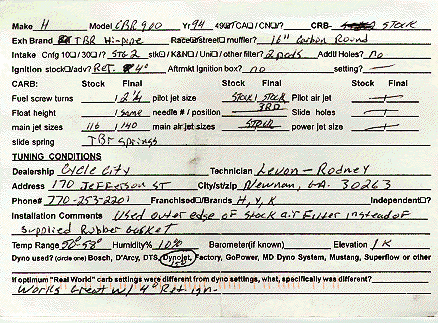 Make H Model CBR 900 Yr 94 49 ST CA / CN / ? CRB- STOCK
Exh Brand TBR Hi-pipe Race Street muffler? 16" Carbon Round
Intake Cnfg 10 / 30 / ? STG 2 stk K&N / Uni / other filter? 2 pcds Addtl Holes? no
Ignition stock / adv? RET. 4° Aftrmkt Ignition box? no setting?
CARB: Stock Final Stock Final Stock Final
Fuel screw turns 2 1/4 pilot jet size STOCK STOCK Pilot air jet
Float height same needle # / position 3RD Slide holes
main jet sizes 116 140 main air jet sizes STOCK power jet size
slide spring TBr Springs
TUNING CONDITIONS
Dealership Cycle City Technician Levon - Rodney
Address 170 Jefferson ST City/st/zip Newnan, GA. 30263
Phone# 770-253-2201 Franchised / Brands H, Y, K Independent ?
Installation Comments Used outer edge of stock air Filter instead of
Supplied Rubber Gasket
Temp Range 50°-58° Humidity% 10% Barometer(if known) Elevation 1K
Dyno used? (circle one) Bosch, D'Arcy, DTS, Dynojet, Factory, GoPower, MD Dyno System, Mustang, Superflow or other
150
If optimum "Real World" carb settings were different from dyno settings, what, specifically was different?
Works Great w/ 4° Ret. ign-